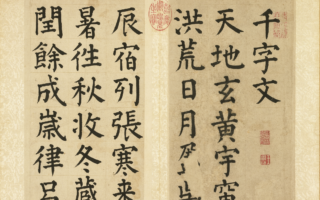 千字文
天地玄黃宇宙
洪荒日月
辰宿列張寒来
暑徃秋收冬藏
閏餘成嵗律吕